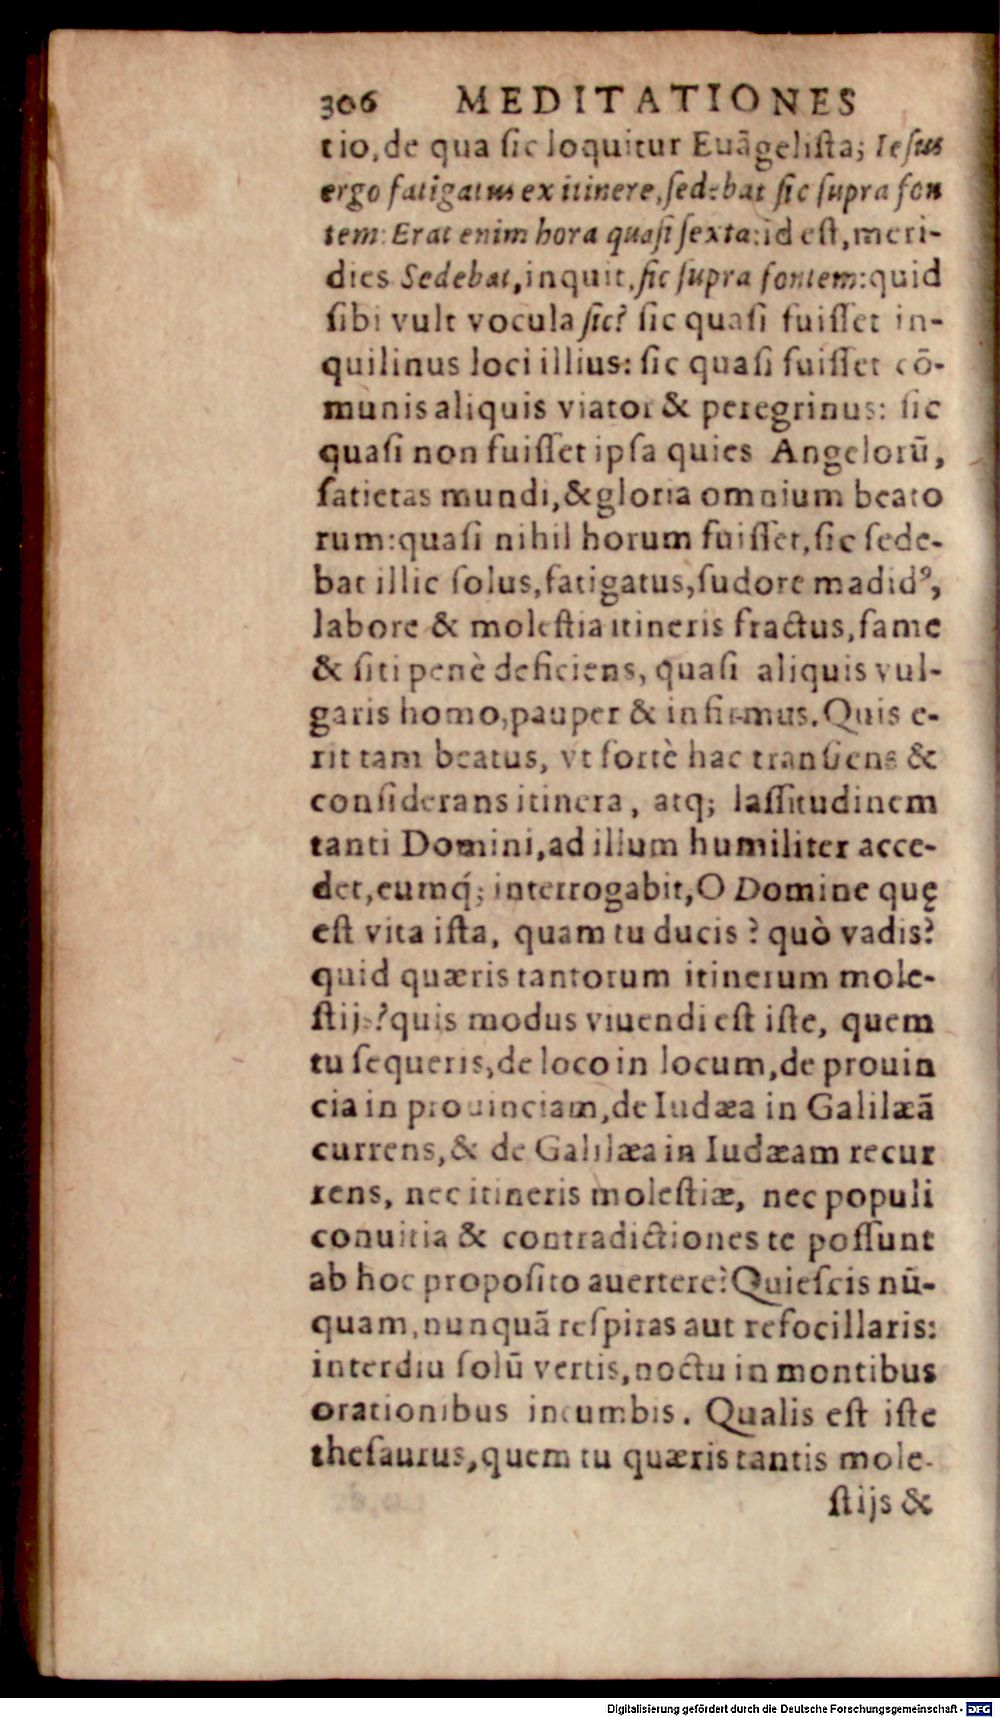 306 MEDITATIONES
tio, de qua sic loquitur Euāgelista; Iesus
ergo fatigatus ex itinere, sedebat sic supra fon
tem: Erat enim hora quasi sexta: id est, meri-
dies Sedebat, inquit, sic supra fontem: quid
sibi vult vocula sic? sic quasi fuisset in-
quilinus loci illius: sic quasi fuisset cō-
munis aliquis viator & peregrinus: sic
quasi non fuisset ipsa quies Angelorū,
satietas mundi, & gloria omnium beato
rum: quasi nihil horum fuisset, sic sede-
bat illic solus, fatigatus, sudore madidꝰ,
labore & molestia itineris fractus, fame
& siti penè deficiens, quasi aliquis vul-
garis homo, pauper & infirmus. Quis e-
rit tam beatus, vt fortè hac transiens &
considerans itinera, atq; lassitudinem
tanti Domini, ad illum humiliter acce-
det, eumq́; interrogabit, O Domine quę
est vita ista, quam tu ducis? quò vadis?
quid quæris tantorum itinerum mole-
stijs? quis modus viuendi est iste, quem
tu sequeris, de loco in locum, de prouin
cia in prouinciam, de Iudæa in Galilæā
currens, & de Galilæa in Iudæam recur
rens, nec itineris molestiæ, nec populi
conuitia & contradictiones te possunt
ab hoc proposito auertere? Quiescis nū-
quam, nunquā respiras aut refocillaris:
interdiu solū vertis, noctu in montibus
orationibus incumbis. Qualis est iste
thesaurus, quem tu quæris tantis mole-
stijs &
Digitalisierung gefördert durch die Deutsche Forschungsgemeinschaft - DFG